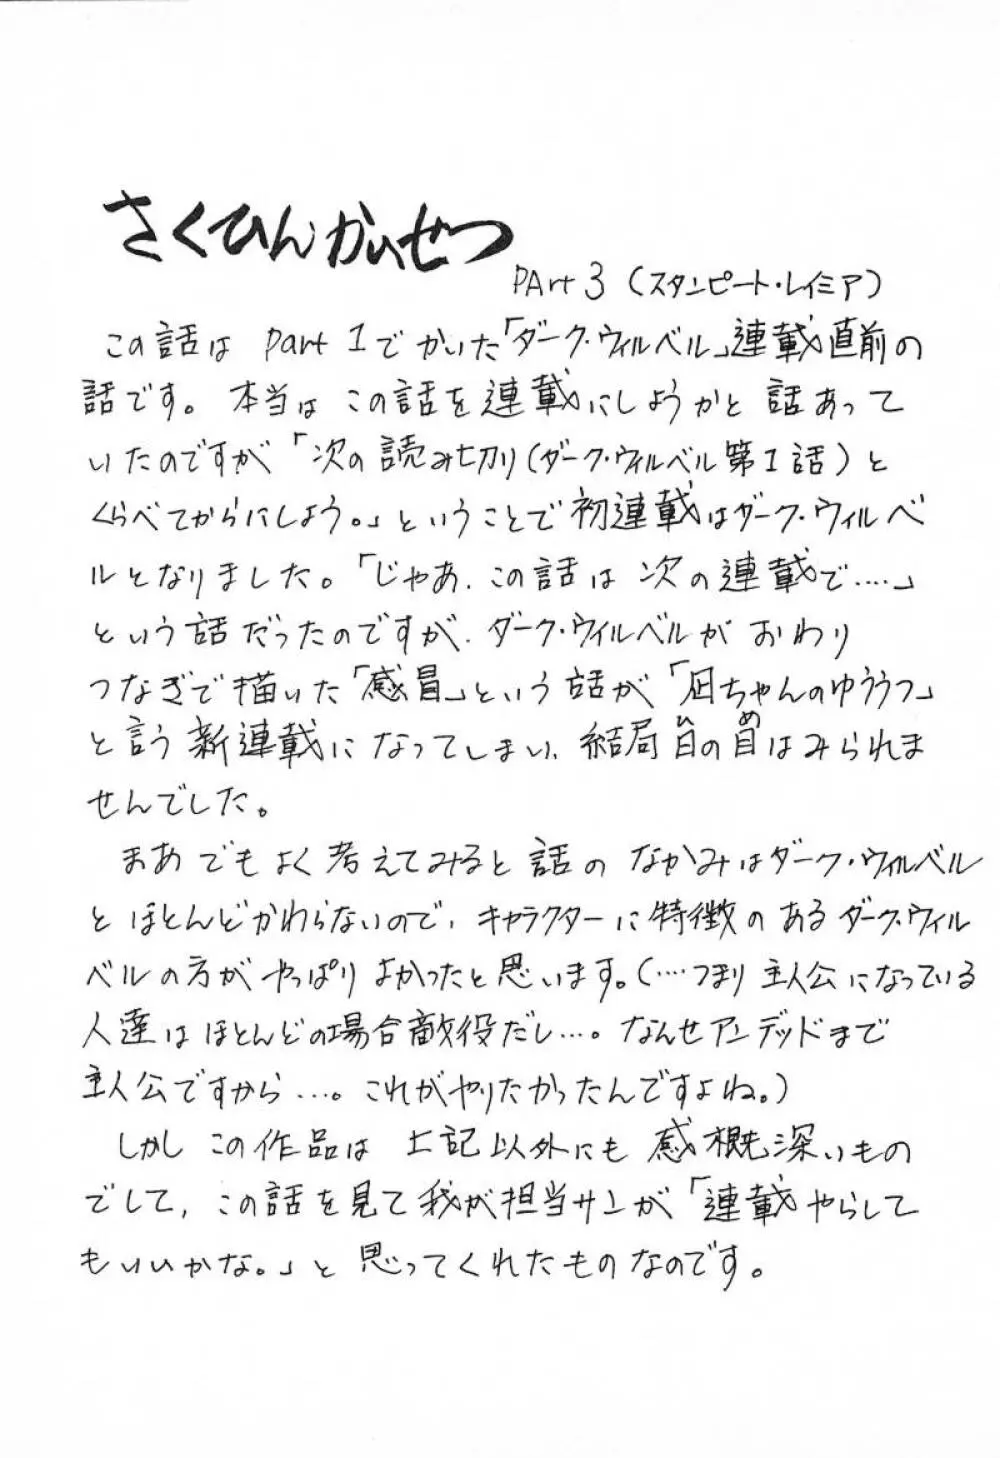 さくひんかいせつ
PArt 3 (スタンピート・レイミア)
この話は part 1でかいた「ダーク・ウィルベル」連載直前の
話です。本当はこの話を連載にしようかと話あって
いたのですが「次の読み切り(ダーク・ウィルベル第1話)と
くらべてからにしよう。」ということで初連載はダーク・ウィルベ
ルとなりました。「じゃあ、この話は次の連載で‥‥」
という話だったのですが、ダーク・ウィルベルがおわり
つなぎで描いた「感冒」という話が「凪ちゃんのゆううつ」
と言う新連載になってしまい、結局日の目はみられま
ひ め
せんでした。
まあでもよく考えてみると話のなかみはダーク・ウィルベル
とほとんどかわらないので、キャラクターに特徴のあるダーク・ウィル
ベルの方がやっぱりよかったと思います。(‥‥つまり主人公になっている
人達はほとんどの場合敵役だし‥‥。なんせアンデッドまで
主人公ですから‥‥。これがやりたかったんですよね。)
しかしこの作品は上記以外にも感概深いもの
でして、この話を見て我が担当サンが「連載やらして
もいいかな。」と思ってくれたものなのです。